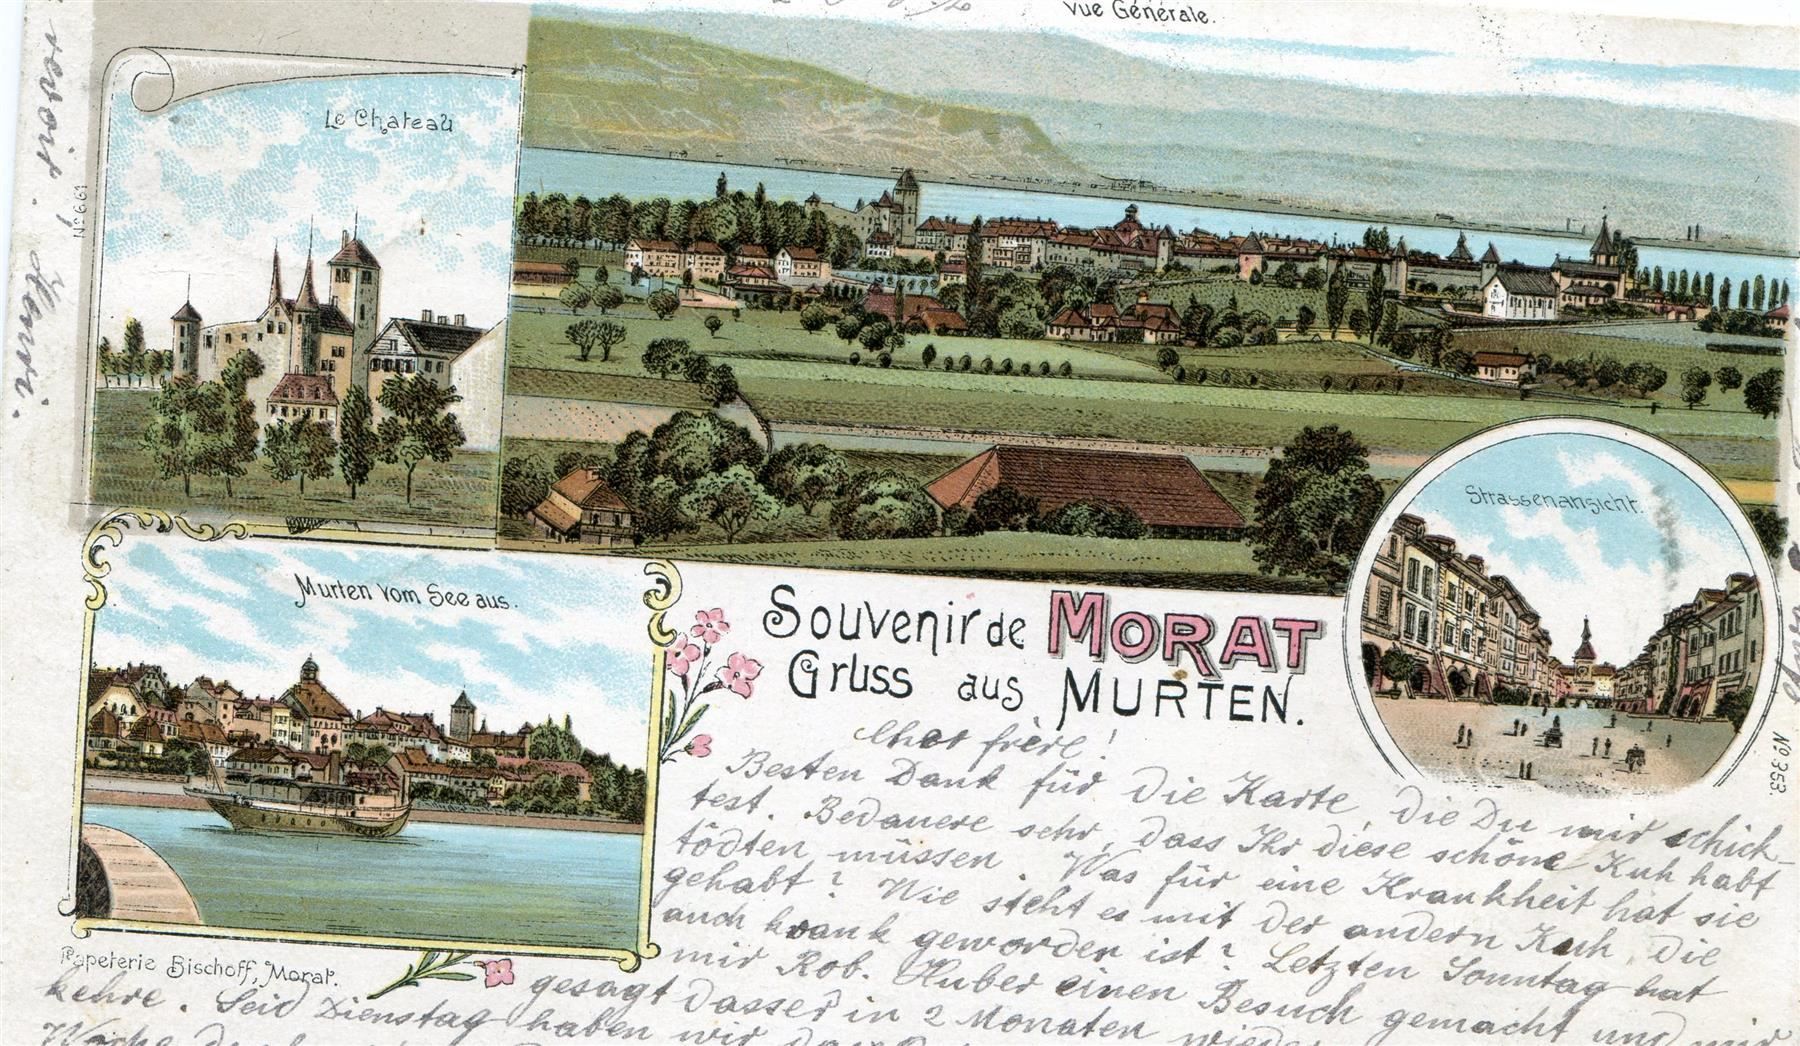 Vue Générale.
Le Chateau
No 661
Strassenansicht.
Murten vom See aus.
Souvenir de MORAT
Gruss aus MURTEN.
No 353.
Papeterie Bischoff, Morat.
Cher frère!
Besten Dank für die Karte, die Du mir schick-
test. Bedauere sehr, dass Ihr diese schöne Kuh habt
tödten müssen. Was für eine Krankheit hat sie
gehabt? Wie steht es mit der andern Kuh, die
auch krank geworden ist? Letzten Sonntag hat
mir Rob. Huber einen Besuch gemacht und mir
gesagt dass er in 2 Monaten wieder
kehre. Seid Dienstag haben wir
Woche
revoir. Henri.